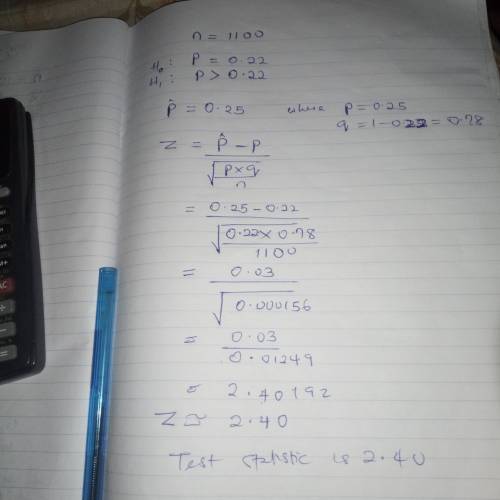 n = 1100
H₀: P = 0.22
H₁: P > 0.22
P̂ = 0.25 where P = 0.25
q = 1 - 0.22 = 0.78
Z = P̂ - P
√ P × q
n
= 0.25 - 0.22
√ 0.22 × 0.78
1100
= 0.03
√ 0.000156
= 0.03
0.01249
= 2.40192
Z ≅ 2.40
Test statistic is 2.40